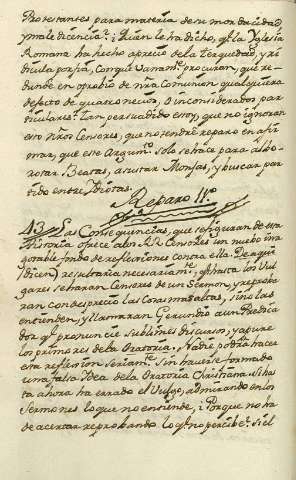 Protestantes para materia de su mordacidad
y maledicencia: ¿Quien le ha dicho, q̃ la Iglesia
Romana ha hecho aprecio de la terquedad, y ri
dicula porfia, con q.e vanam.te procuran, que re
dunde en oprobio de nr̃a Comunion qualquiera
defecto de quatro necios, ó inconsiderados par
ticulares? Tan persuadido estoy, que no ignoran
esto nr̃os Censores, que no tendre reparo en afir
mar, que este Argum.to solo se hizo para albo
rotar Beatas, asustar Monjas, y buscar par
tido entre Idiotas.
Reparo 11.º
43. Las Consequencias, que se figuran de esta
Historia ofrece a los RR. Censores un nuevo ina
gotable fondo de reflexiones contra ella. De aqui
(dicen) resultaria necesariam.te, q̃ hasta los Vul
gares se harán Censores de un Sermon, y reproba
ran con desprecio las Cosas mas altas, sino las
entienden, y llamaran Gerundio a un Predica
dor q̃ pronuncie sublimes discursos, y apure
los primores de la Oratoria. Nadie podrá hacer
esta reflexion seriam.te sin haverse formado
una falsa Idea de la Oratoria Christiana. Si has
ta ahora ha errado el Vulgo, admirando en los
Sermones lo que no entiende, ¿Porque no ha
de acertar reprobando lo q̃ no percibe? Si el